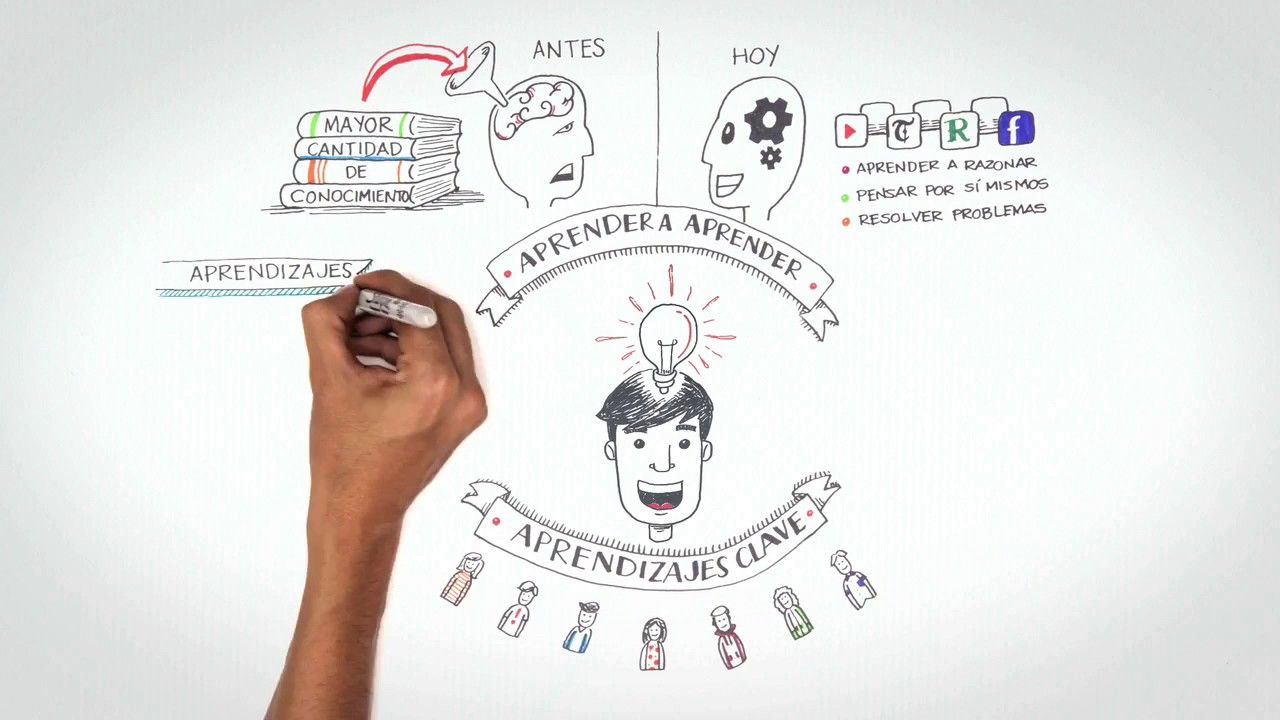 ANTES
HOY
MAYOR
CANTIDAD
DE
CONOCIMIENTO
T
R
f
APRENDER A RAZONAR
PENSAR POR SÍ MISMOS
RESOLVER PROBLEMAS
APRENDER A APRENDER
APRENDIZAJES
APRENDIZAJES CLAVE